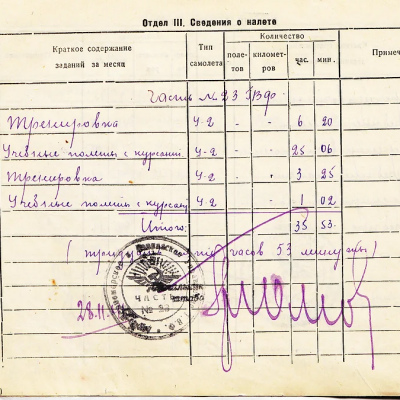 Отдел III. Сведения о налете
Краткое содержание заданий за месяц
Тип самолета
Количество
полетов
километров
час.
мин.
Примеч
Часть № 23 ГВФ
Тренировка У-2 - - 6 20
Учебные полеты с курсант. У-2 - - 25 06
Тренировка У-2 - - 3 25
Учебные полеты с курсант. У-2 - - 1 02
Итого: 35 53.
часов 53 минуты)
ЧАСТЬ
№ 23
28.11.